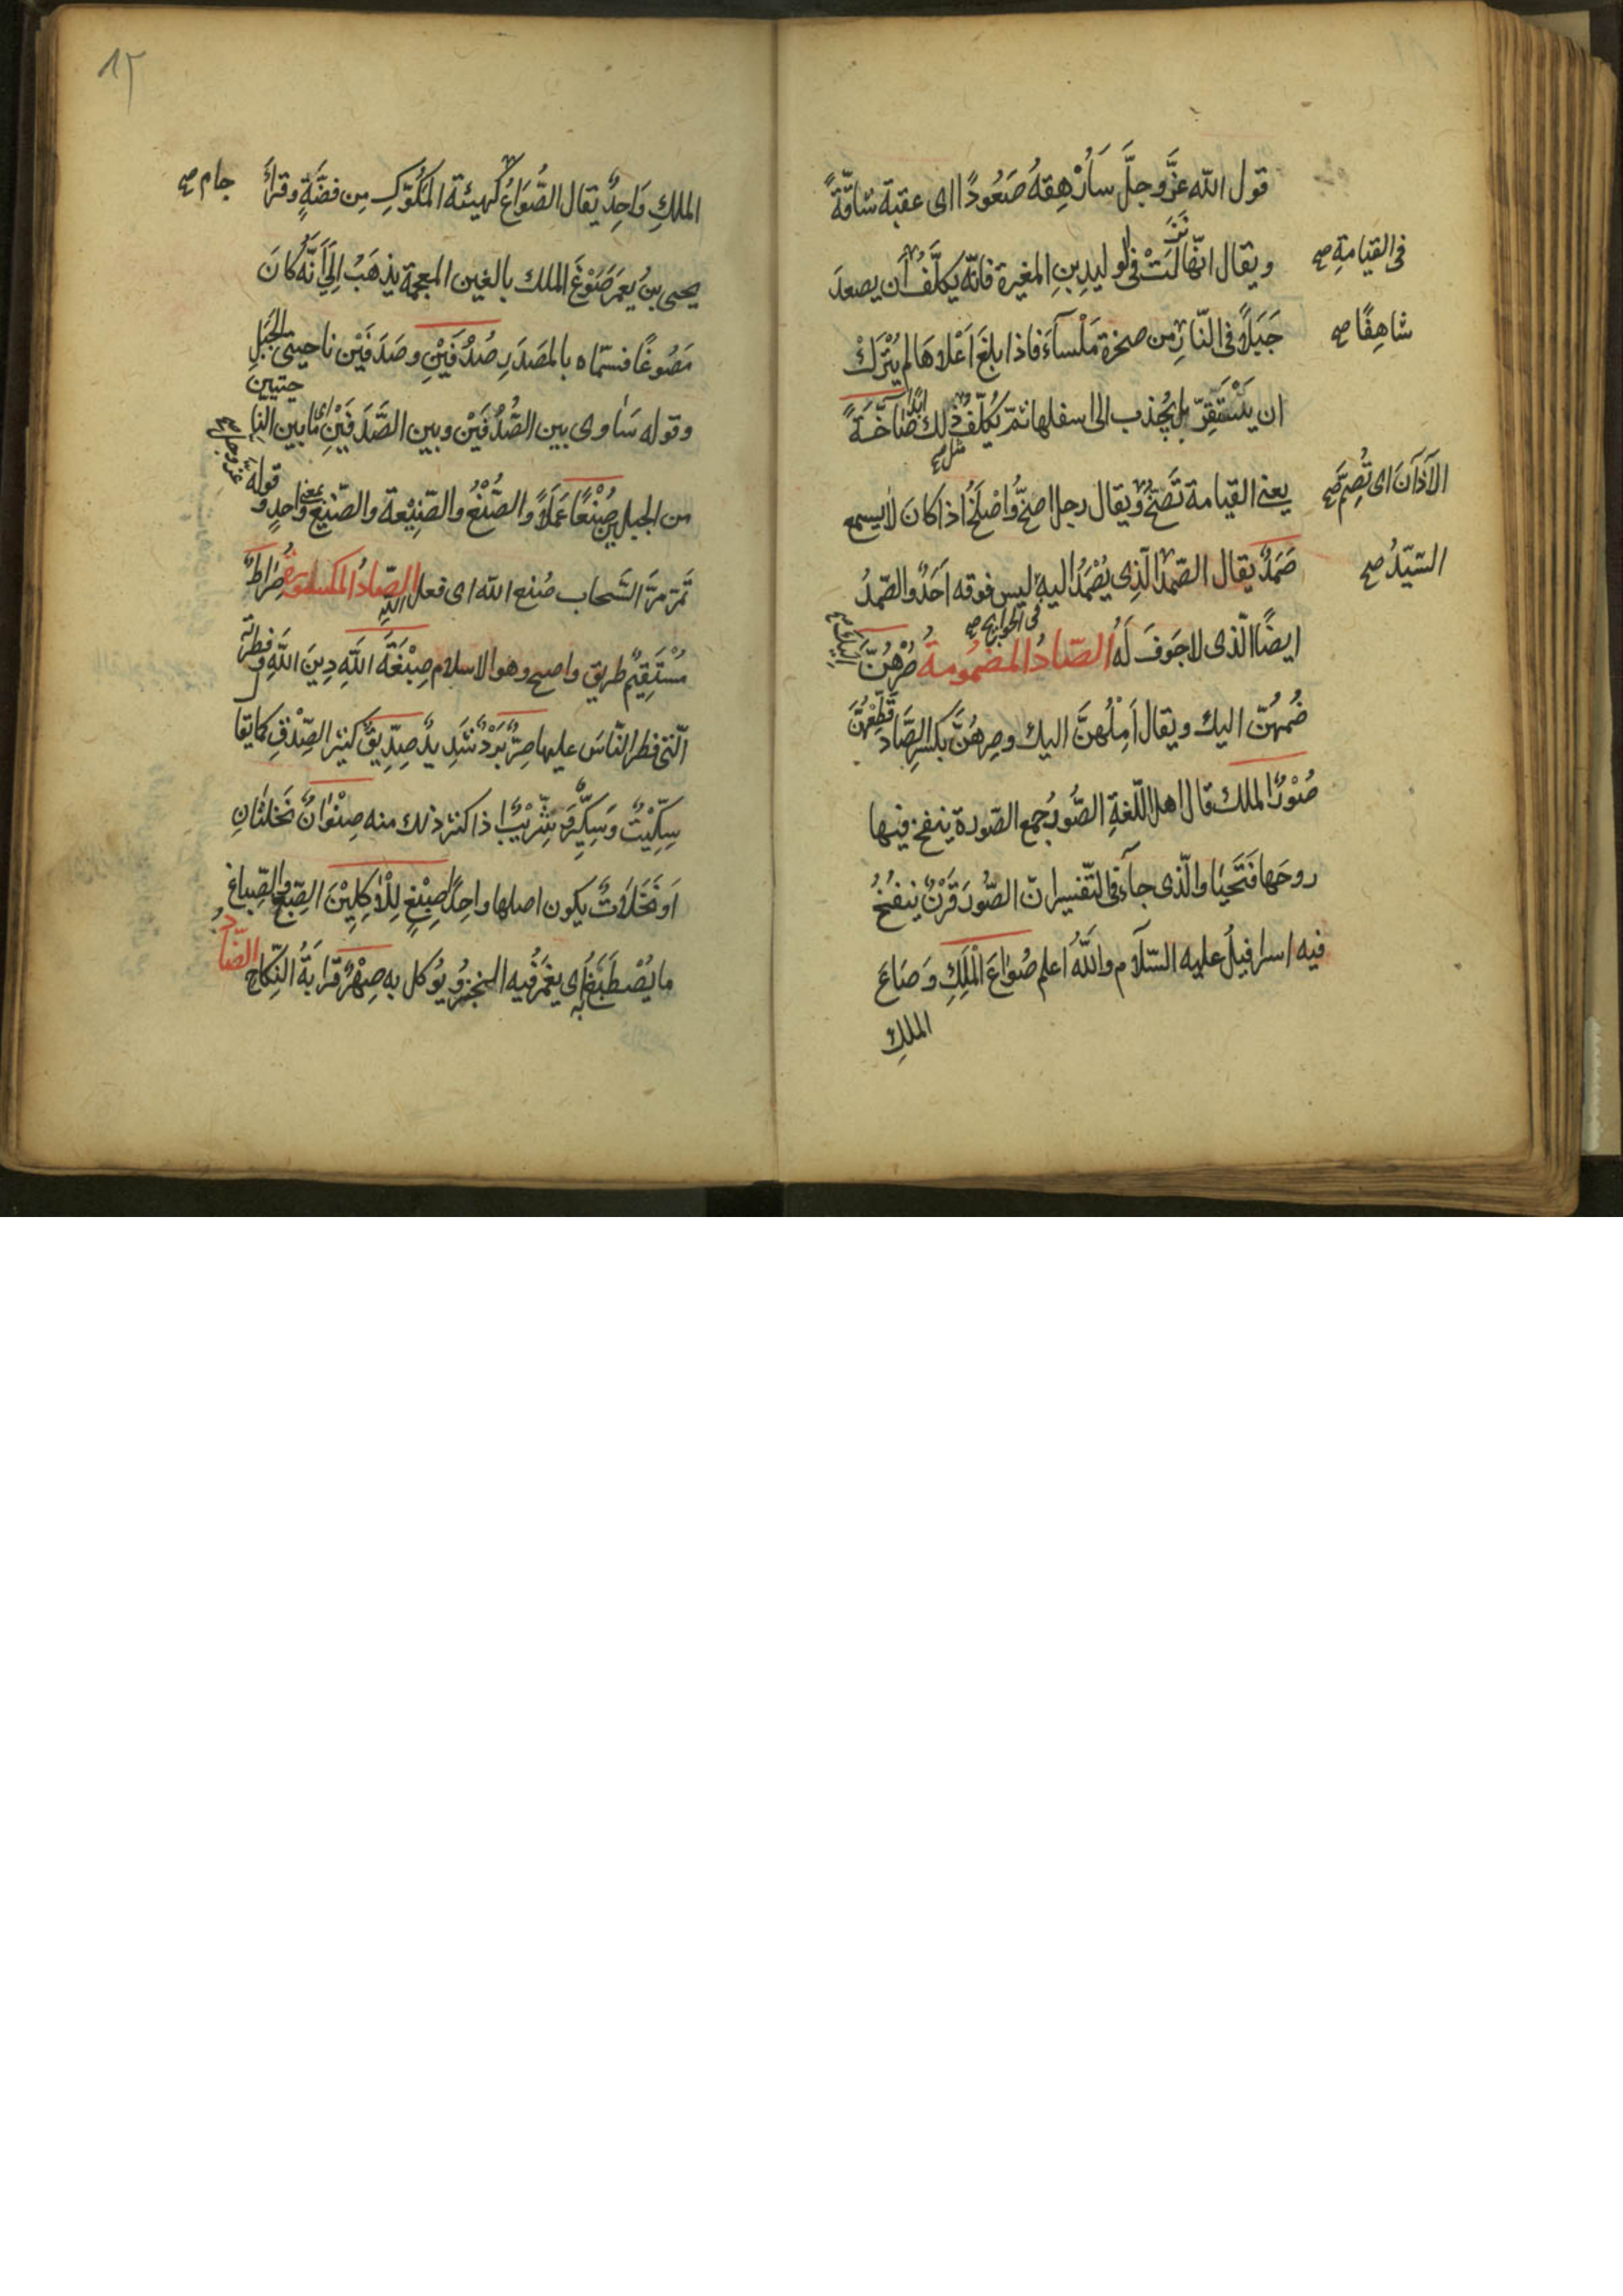 قول الله عزّ وجلّ سَأُرْهِقهُ صَعُودًا اى عقبة شاقّةً
فى القيامةِ صح
ويقال انّها نَزَلَتْ فى الوليد بنِ المغيرة فانّه يكلَّفُ اَن يصعدَ
شاهِقًا صح
جَبَلاً فى النّارِ من صخرة مَلْسآءَ فاذا بلغَ اَعْلاهَا لم يُتْرَكْ
ان يَسْتَقِرّ بل يجُذب الى اسفلها ثمّ يُكلّفُ مثل ذلك ابدًا صَآخّةً
الآذانَ اى تُصِمّ صح
يعنى القيامة تَصَخُّ ويقال رجل اصخُّ واَصْلَخُ اذا كانَ لا يسمع
السّيّدُ صح
صَمَدٌ يقال الصّمدُ الّذِى يُصْمَدُ اليهِ ليس فوقه اَحَدٌ والصّمدُ
فى الحوايج صح
ايضًا الّذى لا جَوفَ لَهُ الصّادُ المضمُومةُ صُرْهُنّ اِلَيْكَ
ضُمهُنّ اليك ويقال اَمِلْهُنَّ اليك وصِرهُنَّ بكسْرِ الصَّاد قَطِّعْهُنَّ
صُوْرٌ الملك قال اهل اللّغةِ الصُّورُ جمع الصّورة ينفخ فيها
روحَها فَتَحيَا والّذى جآء فى التّفسير انّ الصُّورَ قَرْنٌ ينفُخُ
فيه اسرافيلُ عليه السّلام والله اَعلم صُوَاعَ الْمَلِكِ وَصَاعَ
الملكِ
١٢
الملكِ وَاحِدٌ يقال الصُّوَاعُ كهيئة المَكُّوكِ مِن فضّةٍ وقرأ
جام صح
يحيى بنُ يعمرَ صَوْغَ الملك بالغين المعجمة يذهَبُ اِلَى اَنَّهُ كانَ
مَصُوغًا فسمّاه بالمصدَرِ صُدُفَيْنِ وصَدَفَيْن ناحيتى الجَبَلِ
وقوله سَاوى بين الصُّدُفَيْن وبين الصَّدَفَيْنِ اى مابين الناحيتين
من الجبلين صُنْعًا عَمَلاً والصُّنْعُ والصّنِيْعة والصّنيعُ بمعنى واحدٍ وقوله عزّ وجلّ
تَمرّ مرّ السَّحاب صُنع الله اى فعل الله الصّادُ المكسورةُ صِرَاطٌ
مُسْتَقِيمٌ طريق واضح وهو الاسلام صِبْغَةَ اللهِ دِينَ اللهِ وفطرته
الّتى فطر النّاسَ عليها صِرٌّ بَرْدٌ شَدِيدٌ صِدِّيقٌ كثير الصِّدْقِ كما يقا
سِكِّيْتٌ وَسِكِّيرٌ وشِرِّيْبٌ اذا كثر ذلك منه صِنْوَانٌ نَخلتَانِ
اَو نَخَلَاتٌ يكون اصلها واحِدًا صِبْغٍ لِلْاٰكِلِيْنَ الصِّبغُ والصِّباغ
ما يُصْطَبَغُ به اى يغمَرُ فيه الخبز ويُوكل به صِهْرٌ قَرَابَةُ النّكاح الضّادُ